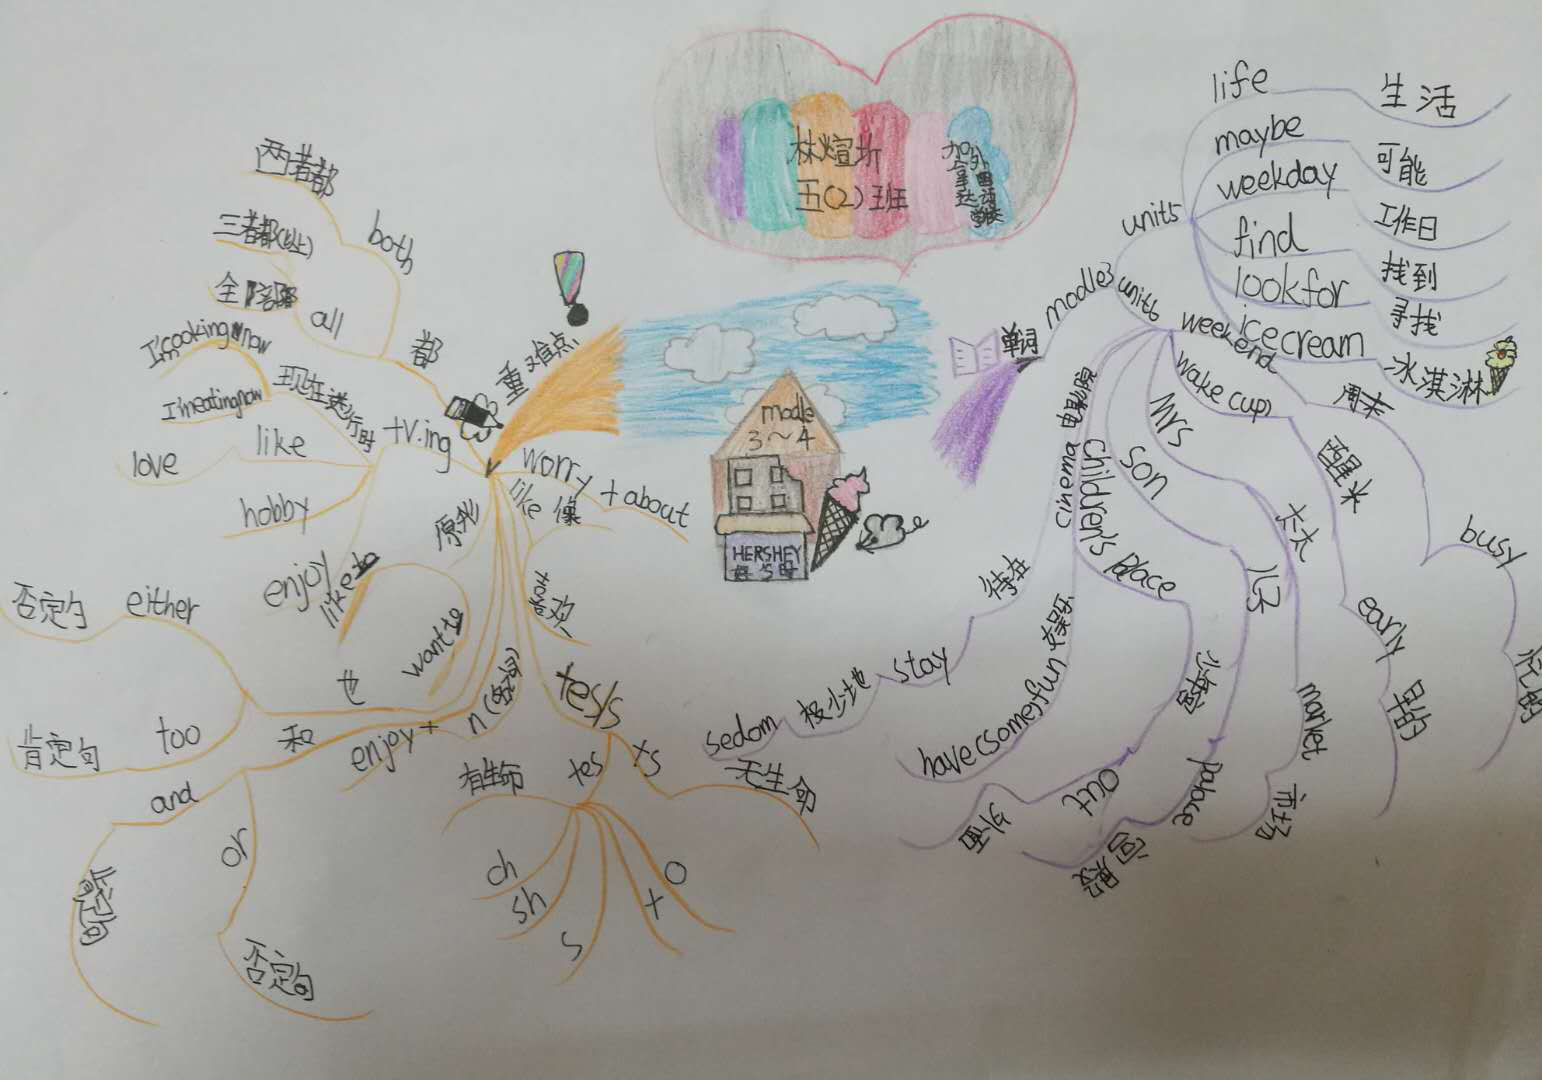 林煊圻
五(2)班
modle
3~4
HERSHEY
重难点
都
both
两者都
all
三者都(以上)
+v.ing
现在进行时
I'm cooking now
I'm eating now
like
love
hobby
enjoy
原形
like to
want to
也
either
否定句
too
肯定句
和
and
肯定句
or
否定句
enjoy+
n(名词)
worry + about
like
像
喜欢
+es/s
+es
有生命
ch
sh
s
x
o
+s
无生命
单词
modle3
unit5
life
生活
maybe
可能
weekday
工作日
find
找到
look for
寻找
icecream
冰淇淋
unit6
weekend
周末
busy
忙的
wake (up)
醒来
early
早的
Mrs
太太
market
市场
son
儿子
palace
宫殿
children's place
少年宫
out
外面
cinema
电影院
have (some) fun
玩得开心
stay
待在
sedom
极少地